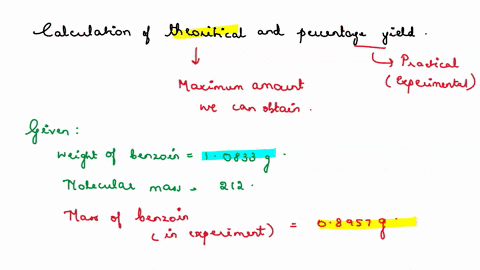 Calculation of theoritical and percentage yield.
Practical
(Experimental)
Maximum amount
we can obtain.
Given:
Weight of benzoin = 1.0833 g.
Molecular mass = 212.
Mass of benzoin
(in experiment) = 0.8957 g.